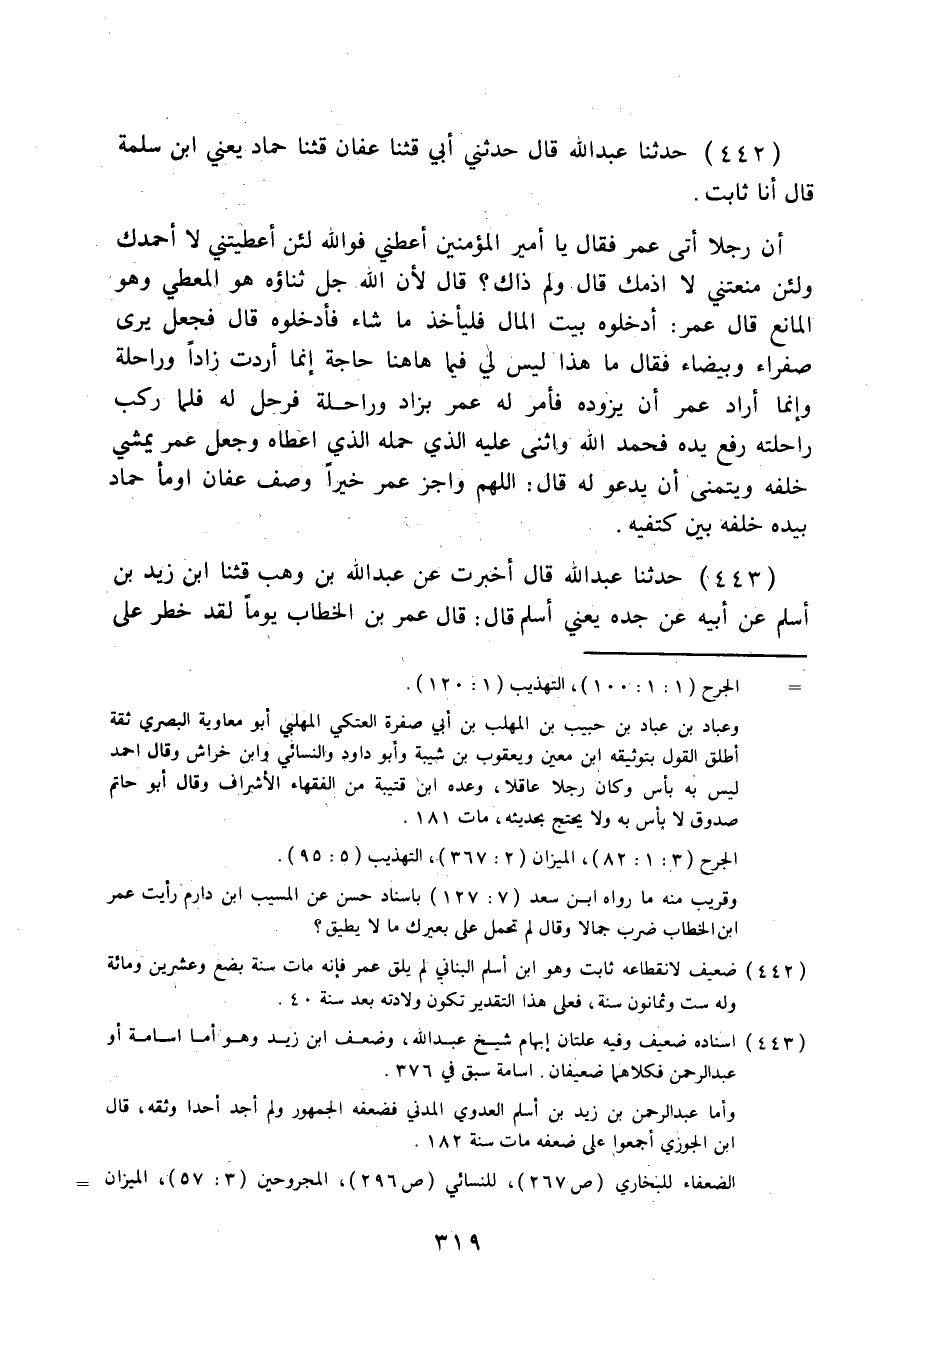 (٤٤٢) حدثنا عبدالله قال حدثني أبي قثنا عفان قثنا حماد يعني ابن سلمة
قال أنا ثابت .
أن رجلا أتى عمر فقال يا أمير المؤمنين أعطني فوالله لئن أعطيتني لا أحمدك
ولئن منعتني لا اذمك قال ولم ذاك؟ قال لأن الله جل ثناؤه هو المعطي وهو
المانع قال عمر: أدخلوه بيت المال فليأخذ ما شاء فأدخلوه قال فجعل يرى
صفراء وبيضاء فقال ما هذا ليس لي فيما هاهنا حاجة إنما أردت زاداً وراحلة
وإنما أراد عمر أن يزوده فأمر له عمر بزاد وراحلة فرحل له فلما ركب
راحلته رفع يده فحمد الله واثنى عليه الذي حمله الذي اعطاه وجعل عمر يمشي
خلفه ويتمنى أن يدعو له قال: اللهم واجز عمر خيراً وصف عفان اومأ حماد
بيده خلفه بين كتفيه .
(٤٤٣) حدثنا عبدالله قال أخبرت عن عبدالله بن وهب قثنا ابن زيد بن
أسلم عن أبيه عن جده يعني أسلم قال: قال عمر بن الخطاب يوماً لقد خطر على
= الجرح (١: ١: ١٠٠)، التهذيب (١: ١٢٠).
وعباد بن عباد بن حبيب بن المهلب بن أبي صفرة العتكي المهلبي أبو معاوية البصري ثقة
أطلق القول بتوثيقه ابن معين ويعقوب بن شيبة وأبو داود والنسائي وابن خراش وقال احمد
ليس به بأس وكان رجلا عاقلا، وعده ابن قتيبة من الفقهاء الأشراف وقال أبو حاتم
صدوق لا بأس به ولا يحتج بحديثه، مات ١٨١ .
الجرح (٣: ١: ٨٢)، الميزان (٢: ٣٦٧)، التهذيب (٥: ٩٥).
وقريب منه ما رواه ابن سعد (٧: ١٢٧) باسناد حسن عن المسيب ابن دارم رأيت عمر
ابن الخطاب ضرب جمالا وقال لم تحمل على بعيرك ما لا يطيق؟
(٤٤٢) ضعيف لانقطاعه ثابت وهو ابن أسلم البناني لم يلق عمر فإنه مات سنة بضع وعشرين ومائة
وله ست وثمانون سنة، فعلى هذا التقدير تكون ولادته بعد سنة ٤٠ .
(٤٤٣) اسناده ضعيف وفيه علتان إبهام شيخ عبدالله، وضعف ابن زيد وهو أما اسامة أو
عبدالرحمن فكلاهما ضعيفان. اسامة سبق في ٣٧٦ .
وأما عبدالرحمن بن زيد بن أسلم العدوي المدني فضعفه الجمهور ولم أجد أحدا وثقه، قال
ابن الجوزي أجمعوا على ضعفه مات سنة ١٨٢ .
الضعفاء للبخاري (ص٢٦٧)، للنسائي (ص٢٩٦)، المجروحين (٣: ٥٧)، الميزان =
٣١٩